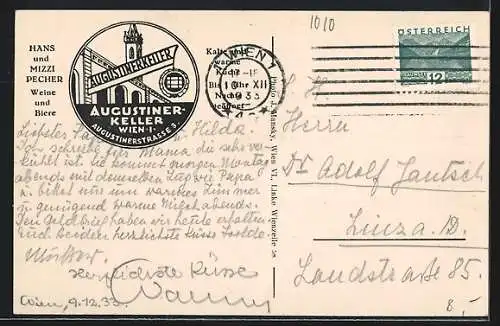 1010
HANS
und
MIZZI
PECHER
Weine
und
Biere
AUGUSTINERKELLER
AUGUSTINER-
KELLER
WIEN·I·
AUGUSTINERSTRASSE
Kalte und
warme
Küche
Bis 1 Uhr
Nachts
geöffnet
WIEN 1
10 XII
33
ÖSTERREICH
12
Photo J. Mansky, Wien VI, Linke Wienzeile
Liebster Papa u. Hilda!
Ich schreibe für Mama die sehr ver-
kühlt ist. Sie kommt morgen Montag
abends mit demselben Zug wie Papa
u. bittet uns ein warmes Zimmer
u. genügend warme Milch abends.
Den Geldbrief haben wir heute erhalten.
und beiden herzlichste Küsse
herzlichste Küsse
Wien, 9.12.33.
S. H.
Herrn
Dr Adolf Jautsch
Linz a. D.
Landstraße 85.
8,-